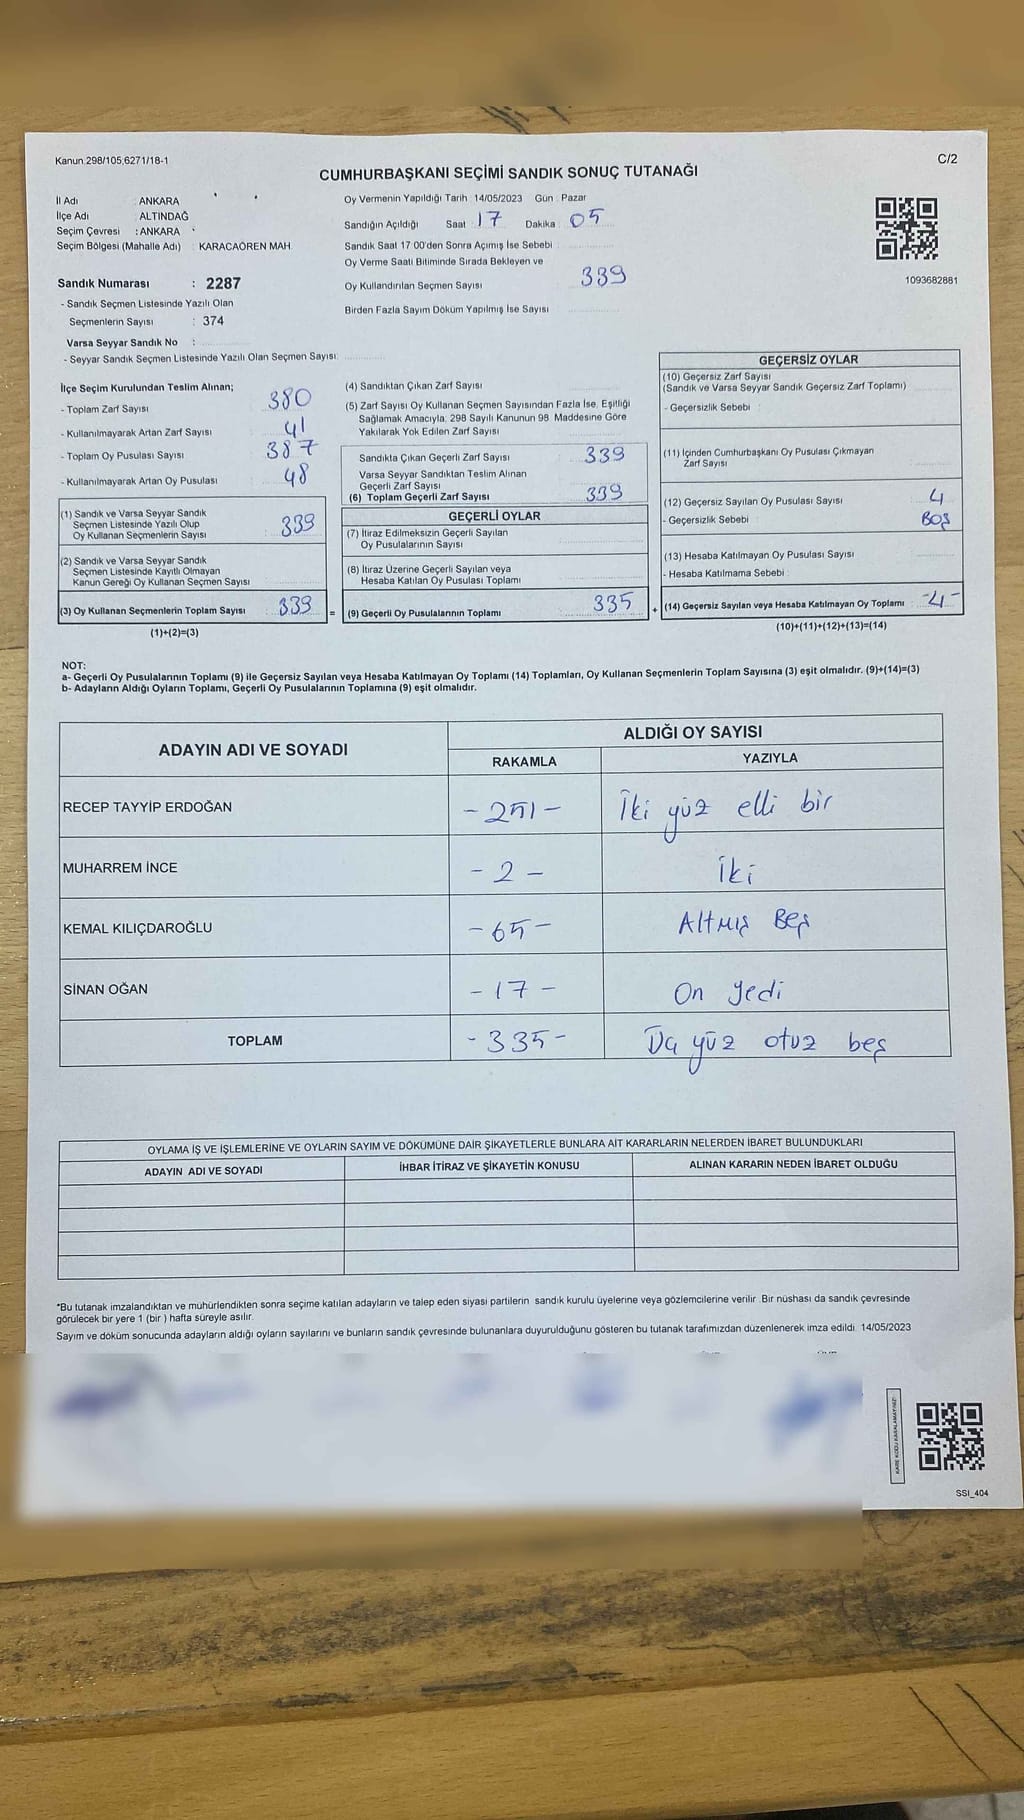 Kanun 298/105,6271/18-1
C/2
CUMHURBAŞKANI SEÇİMİ SANDIK SONUÇ TUTANAĞI
İl Adı : ANKARA
İlçe Adı : ALTINDAĞ
Seçim Çevresi : ANKARA
Seçim Bölgesi (Mahalle Adı) : KARACAÖREN MAH.
Oy Vermenin Yapıldığı Tarih : 14/05/2023 Gün : Pazar
Sandığın Açıldığı Saat 17 Dakika 05
Sandık Saat 17 00'den Sonra Açımış İse Sebebi
Oy Verme Saati Bitiminde Sırada Bekleyen ve
Oy Kullandırılan Seçmen Sayısı 339
Birden Fazla Sayım Döküm Yapılmış İse Sayısı
1093682881
Sandık Numarası : 2287
- Sandık Seçmen Listesinde Yazılı Olan
Seçmenlerin Sayısı : 374
Varsa Seyyar Sandık No :
- Seyyar Sandık Seçmen Listesinde Yazılı Olan Seçmen Sayısı:
İlçe Seçim Kurulundan Teslim Alınan;
- Toplam Zarf Sayısı 380
- Kullanılmayarak Artan Zarf Sayısı 41
- Toplam Oy Pusulası Sayısı 387
- Kullanılmayarak Artan Oy Pusulası 48
(1) Sandık ve Varsa Seyyar Sandık
Seçmen Listesinde Yazılı Olup
Oy Kullanan Seçmenlerin Sayısı : 339
(2) Sandık ve Varsa Seyyar Sandık
Seçmen Listesinde Kayıtlı Olmayan
Kanun Gereği Oy Kullanan Seçmen Sayısı
(3) Oy Kullanan Seçmenlerin Toplam Sayısı : 339 =
(1)+(2)=(3)
(4) Sandıktan Çıkan Zarf Sayısı
(5) Zarf Sayısı Oy Kullanan Seçmen Sayısından Fazla İse, Eşitliği
Sağlamak Amacıyla, 298 Sayılı Kanunun 98. Maddesine Göre
Yakılarak Yok Edilen Zarf Sayısı
Sandıkta Çıkan Geçerli Zarf Sayısı 339
Varsa Seyyar Sandıktan Teslim Alınan
Geçerli Zarf Sayısı
(6) Toplam Geçerli Zarf Sayısı 339
GEÇERLİ OYLAR
(7) İtiraz Edilmeksizin Geçerli Sayılan
Oy Pusulalarının Sayısı
(8) İtiraz Üzerine Geçerli Sayılan veya
Hesaba Katılan Oy Pusulası Toplamı
(9) Geçerli Oy Pusulalarının Toplamı 335 +
GEÇERSİZ OYLAR
(10) Geçersiz Zarf Sayısı
(Sandık ve Varsa Seyyar Sandık Geçersiz Zarf Toplamı)
- Geçersizlik Sebebi :
(11) İçinden Cumhurbaşkanı Oy Pusulası Çıkmayan
Zarf Sayısı
(12) Geçersiz Sayılan Oy Pusulası Sayısı 4
- Geçersizlik Sebebi : BOŞ
(13) Hesaba Katılmayan Oy Pusulası Sayısı
- Hesaba Katılmama Sebebi :
(14) Geçersiz Sayılan veya Hesaba Katılmayan Oy Toplamı : -4-
(10)+(11)+(12)+(13)=(14)
NOT:
a- Geçerli Oy Pusulalarının Toplamı (9) ile Geçersiz Sayılan veya Hesaba Katılmayan Oy Toplamı (14) Toplamları, Oy Kullanan Seçmenlerin Toplam Sayısına (3) eşit olmalıdır. (9)+(14)=(3)
b- Adayların Aldığı Oyların Toplamı, Geçerli Oy Pusulalarının Toplamına (9) eşit olmalıdır.
ADAYIN ADI VE SOYADI
ALDIĞI OY SAYISI
RAKAMLA YAZIYLA
RECEP TAYYİP ERDOĞAN -251- İki yüz elli bir
MUHARREM İNCE -2- İki
KEMAL KILIÇDAROĞLU -65- Altmış Beş
SİNAN OĞAN -17- On yedi
TOPLAM -335- Üç yüz otuz beş
OYLAMA İŞ VE İŞLEMLERİNE VE OYLARIN SAYIM VE DÖKÜMÜNE DAİR ŞİKAYETLERLE BUNLARA AİT KARARLARIN NELERDEN İBARET BULUNDUKLARI
ADAYIN ADI VE SOYADI İHBAR İTİRAZ VE ŞİKAYETİN KONUSU ALINAN KARARIN NEDEN İBARET OLDUĞU
*Bu tutanak imzalandıktan ve mühürlendikten sonra seçime katılan adayların ve talep eden siyasi partilerin sandık kurulu üyelerine veya gözlemcilerine verilir. Bir nüshası da sandık çevresinde
görülecek bir yere 1 (bir ) hafta süreyle asılır.
Sayım ve döküm sonucunda adayların aldığı oyların sayılarını ve bunların sandık çevresinde bulunanlara duyurulduğunu gösteren bu tutanak tarafımızdan düzenlenerek imza edildi. 14/05/2023
KARE KODU KARALAMAYINIZ!
SSI_404